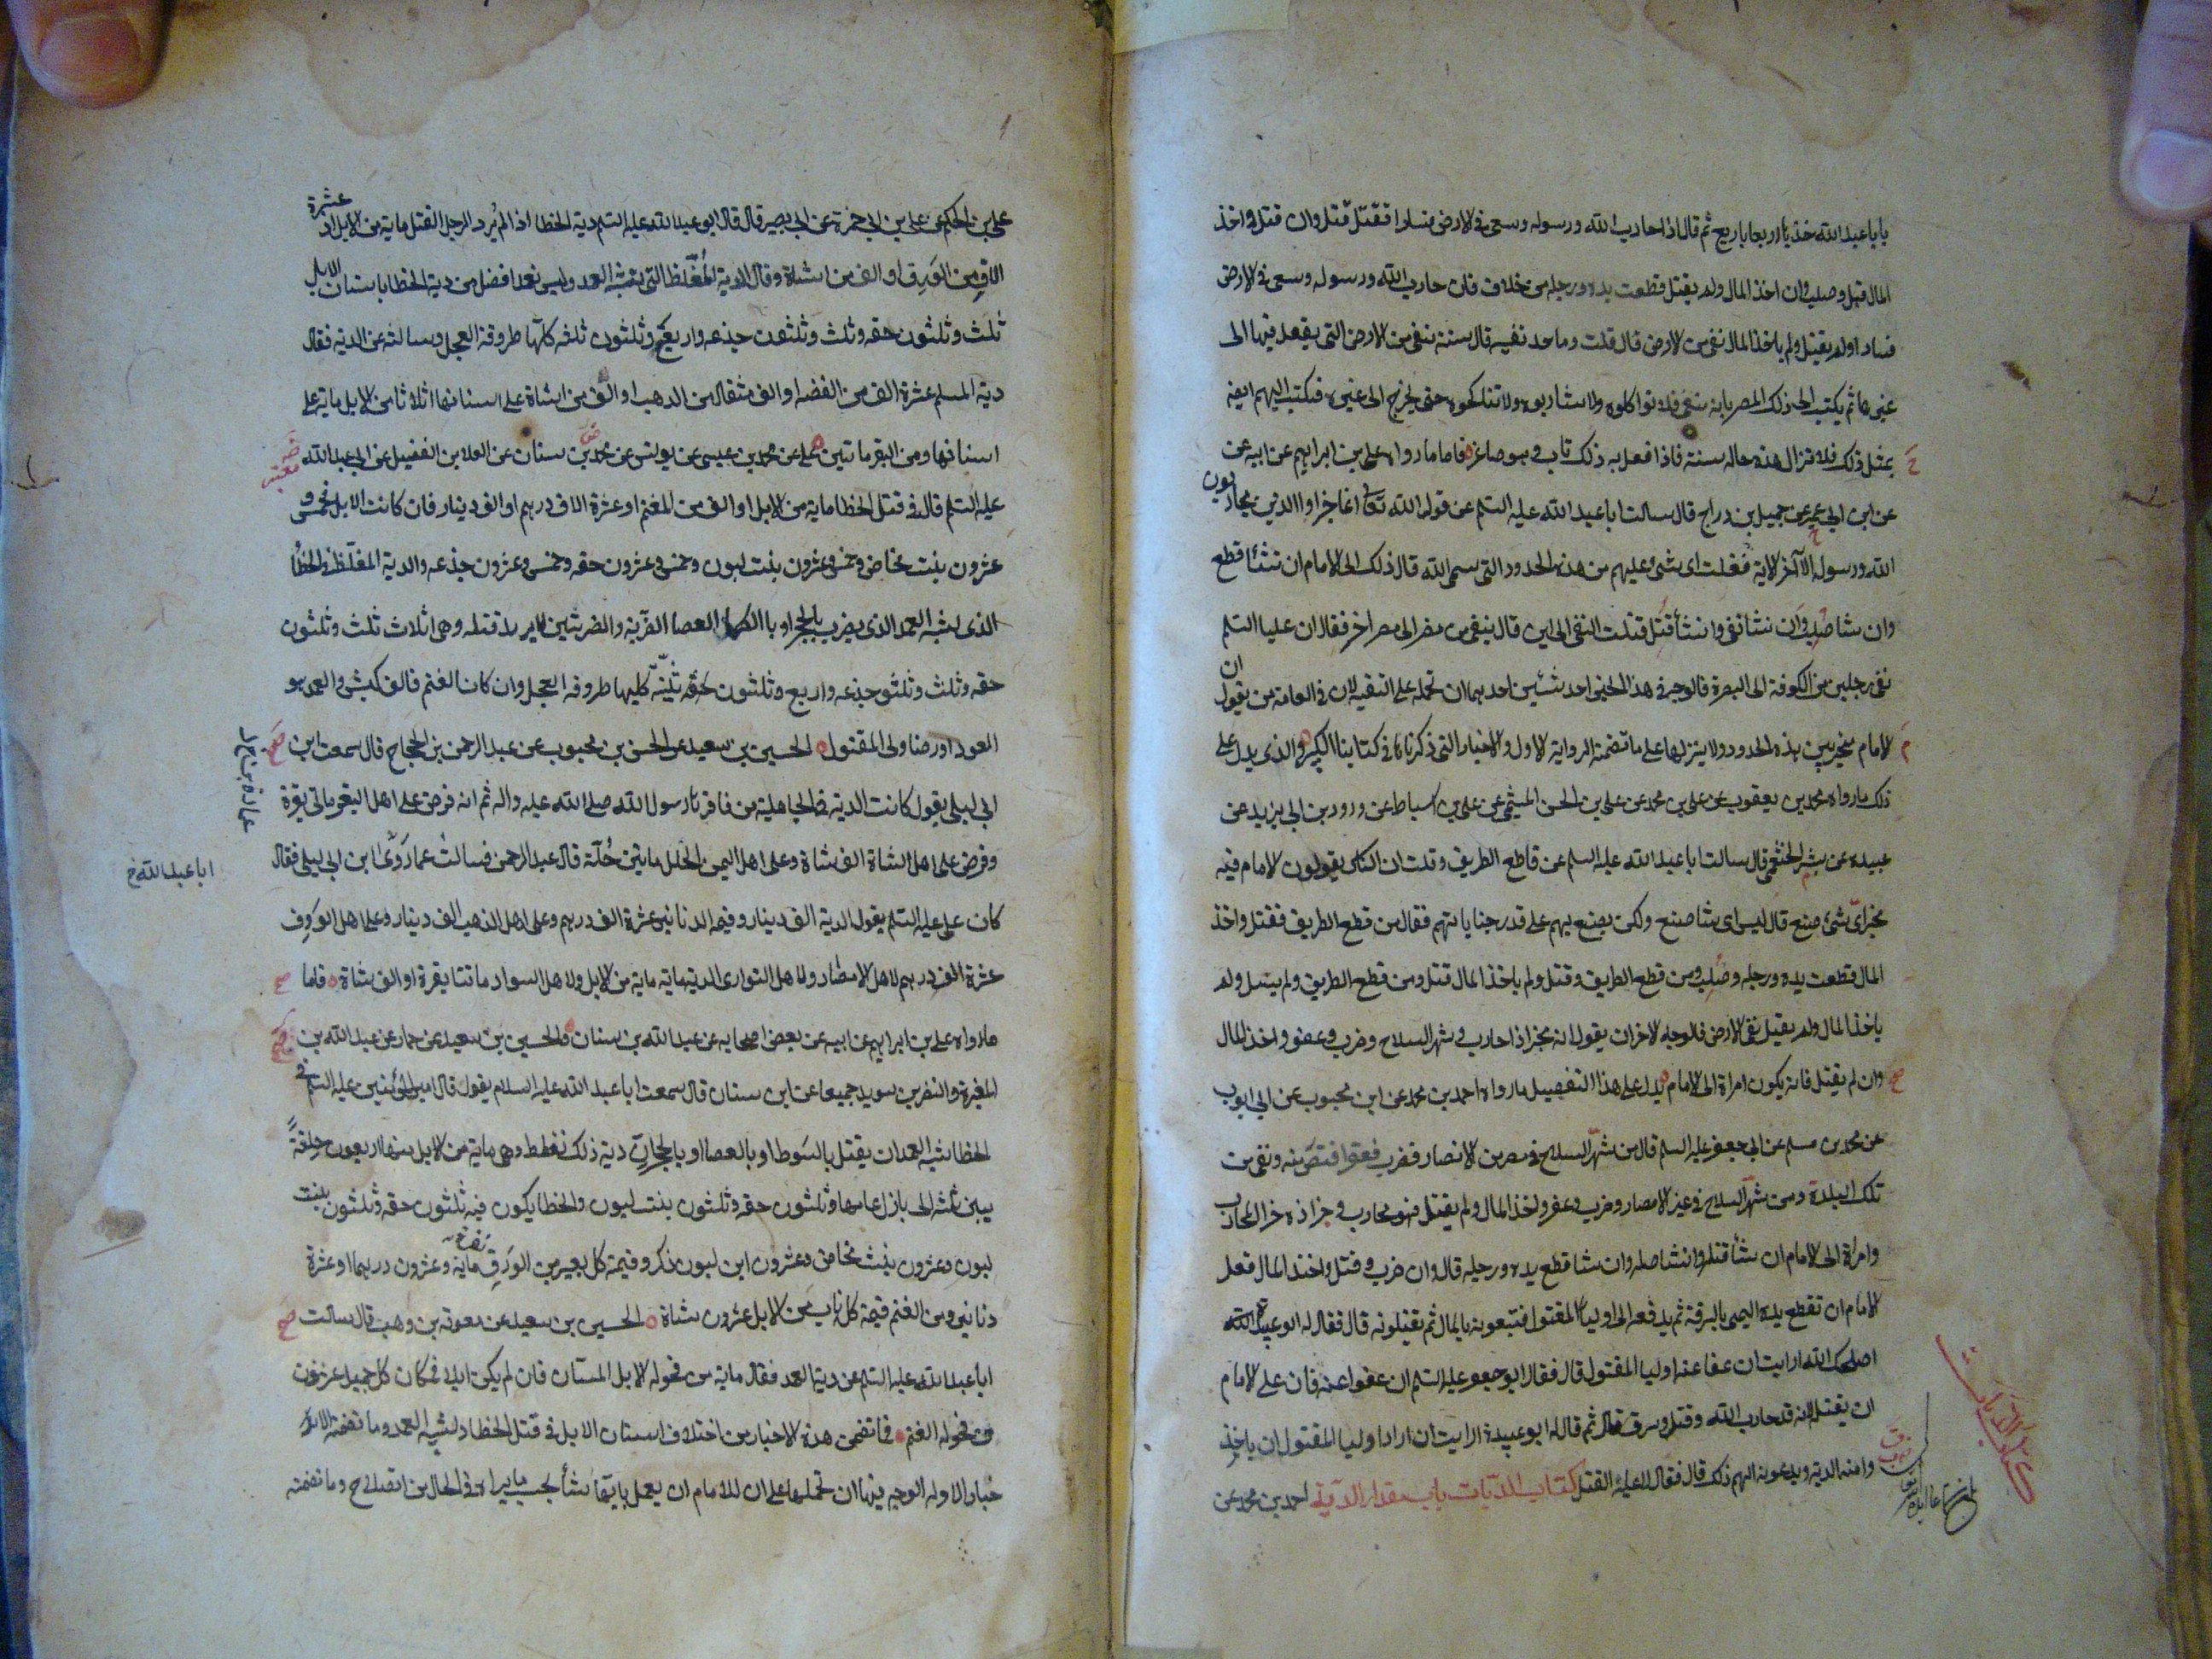 يا با عبد الله خذ يا اربعا باربع ثم قال اذا حارب الله ورسوله وسعى في الارض فسادا فقتل قتل وان قتل واخذ
المال قتل وصلب وان اخذ المال ولم يقتل قطعت يده ورجله من خلاف فان حارب الله ورسوله وسعى في الارض
فسادا ولم يقتل ولم ياخذ المال نفى من الارض قال قلت وما حد نفيه قال سنة ينفى من الارض التي يفعل فيها الى
غيرها ثم يكتب الى ذلك المصر بانه منفى فلا تواكلوه ولا تشاربوه ولا تناكحوه حتى يخرج الى غيره فيكتب اليهم ايضا
بمثل ذلك فلا تزال هذه حاله سنة فاذا فعل به ذلك تاب وهو صاغر فاما ما رواه على بن ابراهيم عن ابيه عن
عن ابن ابي عمير عن جميل بن دراج قال سالت ابا عبد الله عليه السلم عن قول الله تعالى انما جزاوا الذين يحاربون
الله ورسوله الى آخر الاية فقلت اى شئ عليهم من هذه الحدود التي سمى الله قال ذلك الى الامام ان شأ قطع
وان شا صلب وان شا نفى وان شأ قتل قلت النفى الى اين قال ينفى من مصر الى مصر اخر فقال ان عليا السلم
نفى رجلين من الكوفة الى البصرة فالوجه في هذا الخبر احد شيئين احدهما ان نحمله على التقية لان في العامة من يقول ان
الامام مخير بين هذه الحدود ولا ينزلها على ما تضمنه الرواية الاولى والاخبار التي ذكرناها في كتابنا الكبير والذى يدل على
ذلك ما رواه محمد بن يعقوب عن على بن محمد عن على بن الحسن الميثمى عن على بن اسباط عن داود بن ابي يزيد عن
عبيده عن بشير الخثعمى قال سالت ابا عبد الله عليه السلم عن قاطع الطريق وقلت ان الناس يقولون الامام فيه
مخير اىّ شئ صنع قال ليس اى شا صنع ولكن يصنع بهم على قدر جناياتهم فقال من قطع الطريق فقتل واخذ
المال قطعت يده ورجله وصلب ومن قطع الطريق وقتل ولم ياخذ المال قتل ومن قطع الطريق ولم يقتل ولم
ياخذ المال ولم يقتل نفى الارض فالوجه الاخر ان يقول انه مخير اذا حارب وشهر السلاح وضرب وعقر واخذ المال
وان لم يقتل فانه يكون امراة الى الامام يدل على هذا التفصيل ما رواه احمد بن محمد عن ابن محبوب عن ابي ايوب
عن محمد بن مسلم عن ابي جعفر عليه السلم قال من شهر السلاح في مصر من الامصار فضرب فعقر اقتص منه ونفى من
تلك البلدة ومن شهر السلاح في غير الامصار وضرب وعقر واخذ المال ولم يقتل فهو محارب وجزاؤه جزا المحارب
وامراة الى الامام ان شأ قتله وان شا صلبه وان شا قطع يده ورجله قال وان ضرب وقتل واخذ المال فعلى
الامام ان تقطع يده اليمنى بالسرقة ثم يدفعه الى اوليا المقتول فيتبعونه بالمال ثم يقتلونه قال فقال له ابو عبيدة
اصلحك الله ارايت ان عفا عنه اوليا المقتول قال فقال ابو جعفر عليه السلم ان عفوا عنه فان على الامام
ان يقتله لانه قد حارب الله وقتل وسرق قال ثم قال له ابو عبيدة ارايت ان ارادا وليا المقتول ان ياخذ
وا منه الدية ويدعونه الهم ذلك قال فقال لا عليه القتل كتاب الديات باب مقدار الدية احمد بن محمد عن
كتاب الديات
على بن الحكم عن على بن ابي حمزة عن ابي بصير قال قال ابو عبد الله عليه السلم دية الخطا اذا لم يرد الرجل القتل ماية من الابل او عشرة
الاف من الورق او الف من الشاة وقال الدية المغلظة التي تشبه العمد وليس بعمد افضل من دية الخطا باسنان الابل
ثلث وثلثون حقه وثلث وثلثون جذعه واربع وثلثون ثنيه كلها طروقة الفحل وسالته عن الدية فقال
دية المسلم عشرة الف من الفضه او الف مثقال من الذهب او الف من الشاة على اسنانها اثلاثا من الابل ماية على
اسنانها ومن البقر ماتين على عن محمد بن عيسى عن يونس عن محمد بن سنان عن العلا بن الفضيل عن ابي عبد الله
عليه السلم قال في قتل الخطا ماية من الابل او الف من الغنم او عشرة الاف درهم او الف دينار فان كانت الابل فخمس و
عشرون بنت مخاض وخمس وعشرون بنت لبون وخمس وعشرون حقه وخمس وعشرون جذعه والدية المغلظة في الخطأ
الذي يشبه العمد الذي يضرب بالحجر او با العصا الضربة والضربتين لا يريد قتله وهي اثلاث ثلث وثلثون
حقه وثلث وثلثو جذعه واربع وثلثون ثنيّه كلها طروقه الفحل وان كان الغنم فالف كبش والعمد هو
القود او رضا ولى المقتول الحسين بن سعيد عن الحسن بن محبوب عن عبد الرحمن بن الحجاج قال سمعت ابن
ابي ليلى يقول كانت الدية في الجاهلية من فاقرها رسول الله صلى الله عليه واله ثم انه فرض على اهل البقر ماتى بقرة
وفرض على اهل الشاة الف شاة وعلى اهل اليمن الحلل مايتى حُلّة قال عبد الرحمن فسالتُ عما روى ابن ابي ليلى فقال
ابا عبد الله خ
كان على عليه السلم يقول الدية الف دينار وقيمة الدنانير عشرة الف درهم وعلى اهل الذهب الف دينار وعلى اهل الورق
عشرة الف درهم لاهل الامصار ولاهل البوادى الدية ماية من الابل ولاهل السواد ماتتا بقرة او الف شاة فاما
ما رواه على بن ابراهيم عن ابيه عن بعض اصحابه عن عبد الله بن سنان والحسين بن سعيد عن حماد عن عبد الله بن
المغيرة والنضر بن سويد جميعا عن ابن سنان قال سمعت ابا عبد الله عليه السلام يقول قال امير المؤمنين عليه السلم في
الخطا شبه العمد ان يقتل بالسوط او بالعصا او بالحجارة دية ذلك تغلظ وهي ماية من الابل منها اربعون خلفةً
بين ثنيه الى بازل عامها وثلثون حقه وثلثون بنت لبون والخطا يكون فيه ثلثون حقه وثلثون بنت
لبون وعشرون بنت مخاض وعشرون ابن لبون ذكر وقيمة كل بعير من الورق ماية وعشرون درهما او عشرة
دنانير ومن الغنم قيمة كل ناب من الابل عشرون شاة الحسين بن سعيد عن معوية بن وهب قال سالت
ابا عبد الله عليه السلم عن دية العمد فقال ماية من فحولة الابل المسان فان لم يكن ابل فمكان كل جمل عشرون
من فحولة الغنم فما تضمن هذه الاخبار من اختلاف اسنان الابل في قتل الخطا وشبه العمد وما تضمنه الا
خبار الاوله الوجه فيها ان نحملها على ان للامام ان يعمل بايها شأ بحسب ما يراه في الحال من الصلاح وما تضمنته